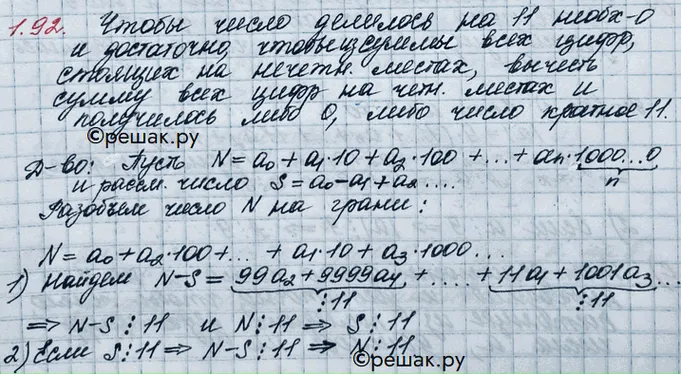 1.92. Чтобы число делилось на 11 необх-о
и достаточно, чтобы из суммы всех цифр,
стоящих на нечетн. местах, вычесть
сумму всех цифр на четн. местах и
получилось либо 0, либо число кратное 11.
©решак.ру
Д-во: Пусть N = a₀ + a₁·10 + a₂·100 + ... + aₙ·1000...0
и рассм. число S = a₀ - a₁ + a₂ .... n
Разобьем число N на грани:
N = a₀ + a₂·100 + ... + a₁·10 + a₃·1000...
1) Найдем N-S = 99a₂ + 9999a₄ + .... + 11a₁ + 1001a₃ ...
⋮11 ⋮11
⇒ N-S ⋮ 11 и N ⋮ 11 ⇒ S ⋮ 11
2) Если S ⋮ 11 ⇒ N-S ⋮ 11 ⇒ N ⋮ 11
©решак.ру